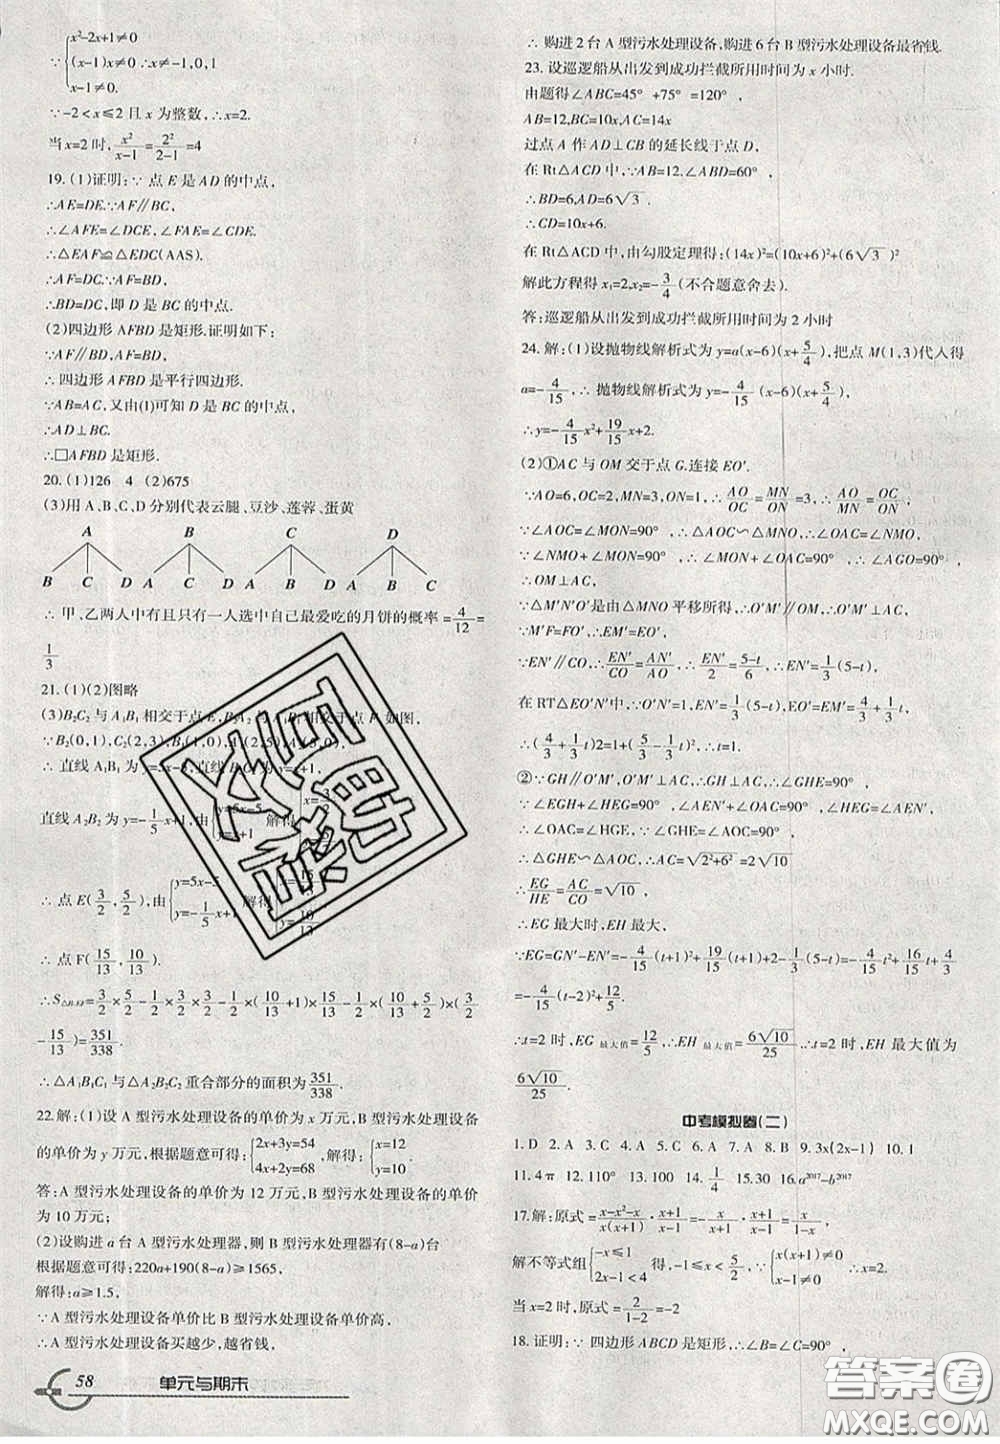 {x²-2x+1≠0
{(x-1)x≠0 ∴x≠-1,0,1
{x-1≠0.
∵-2<x≤2 且 x 为整数,∴x=2.
当 x=2 时, x²/(x-1) = 2²/(2-1) =4
19. (1)证明:∵ 点 E 是 AD 的中点,
∴AE=DE.∵AF∥BC,
∴∠AFE=∠DCE, ∠FAE=∠CDE.
∴△EAF≌△EDC(AAS).
∴AF=DC.∵AF=BD.
∴BD=DC,即 D 是 BC 的中点.
(2)四边形 AFBD 是矩形.证明如下:
∵AF∥BD,AF=BD,
∴四边形 AFBD 是平行四边形.
∵AB=AC,又由(1)可知 D 是 BC 的中点,
∴AD⊥BC.
∴□AFBD 是矩形.
20. (1)126 4 (2)675
(3)用 A、B、C、D 分别代表云腿、豆沙、莲蓉、蛋黄
A B C D
B C D A C D A B D A B C
∴ 甲,乙两人中有且只有一人选中自己最爱吃的月饼的概率 = 4/12 =
1/3
21. (1)(2)图略
(3)B₂C₂ 与 A₁B₁ 相交于点 E,B₂A₂ 与 A₁B₁ 相交于点 F 如图,
∵B₂(0,1),C₂(2,3),B₁(1,0),A₁(2,5),A₂(5,0).
∴ 直线 A₁B₁ 为 y=5x-5,直线 B₂C₂ 为 y=x+1,
直线 A₂B₂ 为 y=-1/5 x+1,由 {y=5x-5 {y=x+1 解得 {x=3/2
∴ 点 E(3/2,5/2),由 {y=5x-5 {y=-1/5 x+1 解得 {x=15/13 {y=10/13
∴ 点 F(15/13,10/13).
∴S = 3/2×5/2-1/2×3/2×3/2-1/2×(10/13+1)×15/13-1/2×(10/13+5/2)×(3/2
-15/13)=351/338.
∴△A₁B₁C₁ 与△A₂B₂C₂ 重合部分的面积为 351/338.
22.解:(1)设 A 型污水处理设备的单价为 x 万元,B 型污水处理设备
的单价为 y 万元,根据题意可得: {2x+3y=54 {4x+2y=68 ,解得: {x=12 {y=10
答:A 型污水处理设备的单价为 12 万元,B 型污水处理设备的单价
为 10 万元;
(2)设购进 a 台 A 型污水处理器,则 B 型污水处理器有(8-a)台
根据题意可得:220a+190(8-a)≥1565,
解得:a≥1.5,
∵A 型污水处理设备单价比 B 型污水处理设备单价高,
∴A 型污水处理设备买越少,越省钱.
58 单元与期末
∴ 购进 2 台 A 型污水处理设备,购进 6 台 B 型污水处理设备最省钱.
23. 设巡逻船从出发到成功拦截所用时间为 x 小时.
由题得∠ABC=45° +75° =120° ,
AB=12,BC=10x,AC=14x
过点 A 作 AD⊥CB 的延长线于点 D,
在 Rt△ACD 中,∵AB=12.∠ABD=60° ,
∴BD=6,AD=6√3 .
∴CD=10x+6.
在 Rt△ACD 中,由勾股定理得:(14x)²=(10x+6)²+(6√3)²
解此方程得 x₁=2,x₂=-3/4 (不合题意舍去).
答:巡逻船从出发到成功拦截所用时间为 2 小时
24. 解:(1)设抛物线解析式为 y=a(x-6)(x+5/4),把点 M(1,3)代入得
a=-4/15,∴ 抛物线解析式为 y=-4/15 (x-6)(x+5/4),
∴y=-4/15 x²+19/15 x+2.
(2)①AC 与 OM 交于点 G.连接 EO′.
∵AO=6,OC=2,MN=3,ON=1,∴ AO/OC = MN/ON =3,∴ AO/MN = OC/ON,
∵∠AOC=∠MON=90° ,∴△AOC∽△MNO,∴∠OAC=∠NMO,
∵∠NMO+∠MON=90° ,∴∠MON+∠OAC=90° ,∴∠AGO=90° ,
∴OM⊥AC,
∵△M′N′O′是由△MNO 平移所得,∴O′M′∥OM,∴O′M′⊥AC,
∵M′F=FO′,∴EM′=EO′,
∵EN′∥CO,∴ EN′/CO = AN′/AO ,∴ EN′/2 = (5-t)/6 ,∴EN′= 1/3 (5-t),
在 RT△EO′N′中,O′N′=1,EN′= 1/3 (5-t),EO′=M′E= 4/3 + 1/3 t,
∴( 4/3 + 1/3 t)2=1+( 5/3 - 1/3 t)2,∴t=1.
②∵GH∥O′M′,O′M′⊥AC,∴GH⊥AC,∴∠GHE=90° ,
∵∠EGH+∠HEG=90° ,∠AEN′+∠OAC=90° ,∠HEG=∠AEN′,
∴∠OAC=∠HGE, ∵∠GHE=∠AOC=90° ,
∴△GHE∽△AOC,∵AC=√2²+6² =2√10
∴ EG/HE = AC/CO =√10 ,
∴EG 最大时,EH 最大,
∵EG=GN′-EN′=- 4/15 (t+1)²+ 19/15 (t+1)+2- 1/3 (5-t)=- 4/15 t²+ 16/15 t+ 4/3
=- 4/15 (t-2)²+ 12/5.
∴t=2 时,EG 最大值= 12/5 ,∴EH 最大值= 6√10/25 .∴t=2 时,EH 最大值为
6√10/25.
中考模拟卷(二)
1. D 2. A 3. C 4. C 5. C 6. A 7. A 8. B 9. 3x(2x-1) 10. 1
11. 4π 12. 110° 13. 100 14. 1/4 15. 30 16. a²⁰¹⁷-b²⁰¹⁷
17.解:原式 = (x-x²-x)/(x(x+1)) · (x+1)/(x-1) =- x/(x+1) · (x+1)/(x-1) = x/(1-x)
解不等式组 {-x≤1 {2x-1<4 得,-1≤x< 5/2 ,∵ {x(x+1)≠0 {x-1≠0 ,∴x=2.
当 x=2 时,原式= 2/(1-2) =-2
18. 证明:∵ 四边形 ABCD 是矩形,∴∠B=∠C=90° ,
百勤文言
答案圈
MXQE.COM